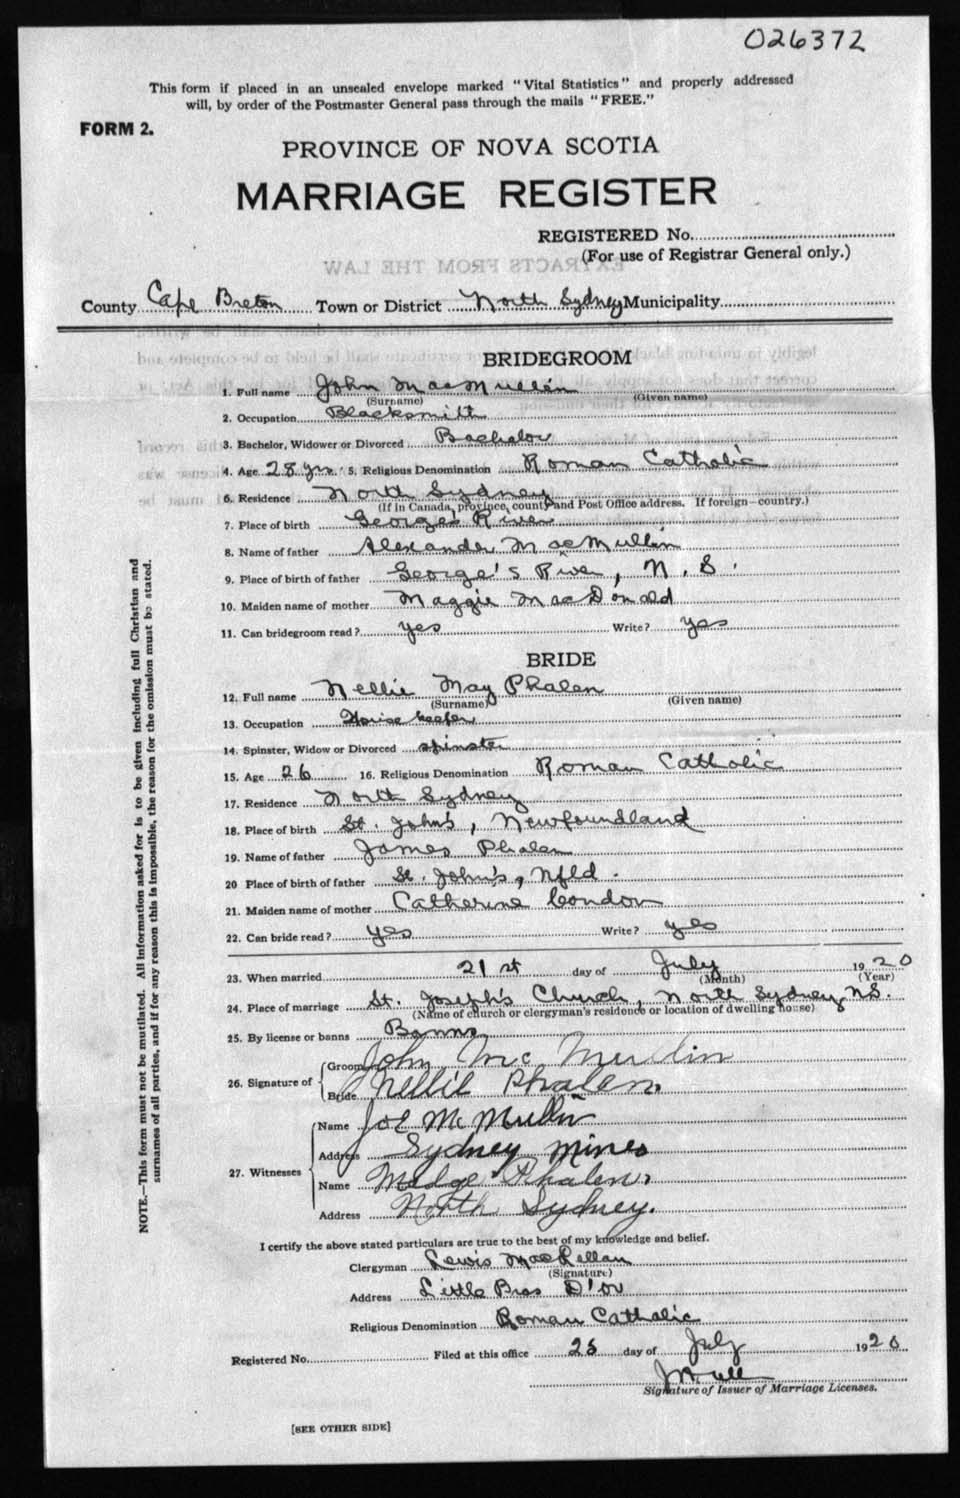 026372
This form if placed in an unsealed envelope marked "Vital Statistics" and properly addressed
will, by order of the Postmaster General pass through the mails "FREE."
FORM 2.
PROVINCE OF NOVA SCOTIA
MARRIAGE REGISTER
REGISTERED No.
(For use of Registrar General only.)
EXTRACTS FROM THE LAW
County Cape Breton Town or District North Sydney Municipality
BRIDEGROOM
1. Full name John MacMullin
(Surname) (Given name)
2. Occupation Blacksmith
3. Bachelor, Widower or Divorced Bachelor
4. Age 28 yrs. 5. Religious Denomination Roman Catholic
6. Residence North Sydney
(If in Canada, province, county and Post Office address. If foreign—country.)
7. Place of birth George's River
8. Name of father Alexander MacMullin
9. Place of birth of father George's River, N.S.
10. Maiden name of mother Maggie MacDonald
11. Can bridegroom read? yes Write? yes
BRIDE
12. Full name Nellie May Phalen
(Surname) (Given name)
13. Occupation Housekeeper
14. Spinster, Widow or Divorced spinster
15. Age 26 16. Religious Denomination Roman Catholic
17. Residence North Sydney
18. Place of birth St. John's, Newfoundland
19. Name of father James Phalen
20 Place of birth of father St. John's, Nfld.
21. Maiden name of mother Catherine Condon
22. Can bride read? yes Write? yes
23. When married 21st day of July 1920
(Month) (Year)
24. Place of marriage St. Joseph's Church, North Sydney, N.S.
(Name of church or clergyman's residence or location of dwelling house)
25. By license or banns Banns
26. Signature of Groom John McMullin
Bride Nellie Phalen
27. Witnesses
Name Joe McMullin
Address Sydney Mines
Name Madge Phalen
Address North Sydney.
I certify the above stated particulars are true to the best of my knowledge and belief.
Clergyman Lewis MacLellan
(Signature)
Address Little Bras D'or
Religious Denomination Roman Catholic
Registered No. Filed at this office 25 day of July 1920
Signature of Issuer of Marriage Licenses.
[SEE OTHER SIDE]
NOTE.—This form must not be mutilated. All information asked for is to be given including full Christian and
surnames of all parties, and if for any reason this is impossible, the reason for the omission must be stated.